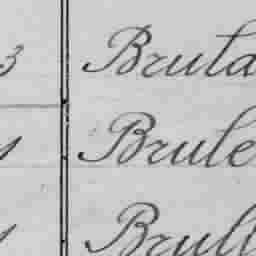 3 Bruta
1 Brule
1 Brull